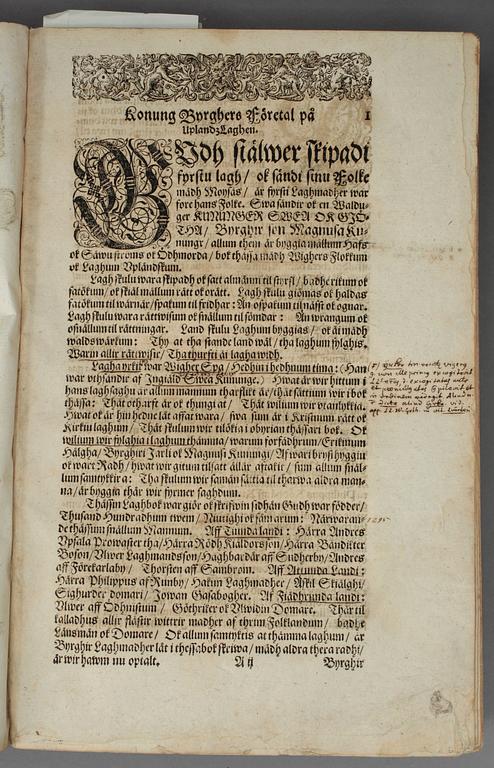 Konung Byrghers Företal på
1
Uplandz Laghen.
GUdh siälwer skipadi
fyrstu lagh / ok sändi sinu Folke
mädh Moysäs / är fyrsti Laghmadher war
fore hans Folke. Swa sändir ok en Waldu-
ger KUNINGER SWEA OK GIÖ-
THA / Byrghir son Magnusa Ku-
nungx / allum them är byggia mällum Hafs
ok Säwu ströms ok Ödhmorda / bok thässä mädh Wighers Flokkum
ok Laghum Upländskum.
Lagh skulu wara skipadh ok satt almänni til styrsl / badhe rikum ok
fatökum / ok skiäl mällum rätt ok orätt. Lagh skulu giömas ok haldas
fatökum til wärnär / spakum til fridhar: Än ospakum til näfst ok ognar.
Lagh skulu wara rättwisum ok snällum til sömdar: Än wrangum ok
osnällum til rättningar. Land skulu Laghum byggias / ok äi mädh
waldswärkum: Thy at tha standa land wäl / tha laghum fylghis.
Warin allir rätwisir / Tha thurfti äi lagha widh.
Lagha yrkir war Wigher Spa / Hedhin i hedhnum tima: (Han
war uthsändir af Ingiäld Swea Kununge.) Hwat är wir hittum i
hans laghsaghu är allum mannum tharflikt är / thät sättium wir i bok
thässa: Thät otharft är ok thungi at / Thät wilium wir utanlykkia.
Hwat ok är hin hedne lät affatt wara / swa sum är i Kristnum rätt ok
Kirkiu laghum / Thät skulum wir tilökia i obyrian thässari bok. Ok
wilium wir fylghia i laghum thämma / warum forfädhrum / Erikinum
Hälgha / Byrghiri Jarli ok Magnusi Kunungi / Af wari brystbyggiu
ok ware Radh / hwat wir gitum tilsatt ällär aftakit / sum allum snäl-
lum samtykkir a: Tha skulum wir saman sättia til tharwa aldra man-
na / är byggia thär wir fyrmer saghdum.
Thässin Laghbok war giör ok skriwin sidhän Gudh war födder /
Thusand Hundradhum twem / Niutighi ok fäm arum: Närwaran-
de thässum snällum Mannum. Aff Tiunda landi: Härra Andres
Upsala Prowaster tha / Härra Rödh Kiäldorsson / Härra Bändikter
Boson / Ulwer Laghmandsson / Haghbardär aff Sudherby / Andres
aff Forekarlaby / Thorsten aff Sambrom. Aff Attunda Landi:
Härra Philippus aff Runby / Hakun Laghmadher / Äskil Skiälghi /
Sighurder domari / Jowan Gasabogher. Af Fiädhrunda landi:
Ulwer aff Ödhnisium / Göthriker ok Ulwidin Domare. Thär til
kalladhus allir fläster wittrir madher af thrim Folklandum / badhe
Länsmän ok Domare / Ok allum samtyktis at thämma laghum / är
Byrghir Laghmadher lät i thessa bok skriwa / mädh aldra thera radhi /
är wir hawm nu opialt.
A ij
Byrghir
1295